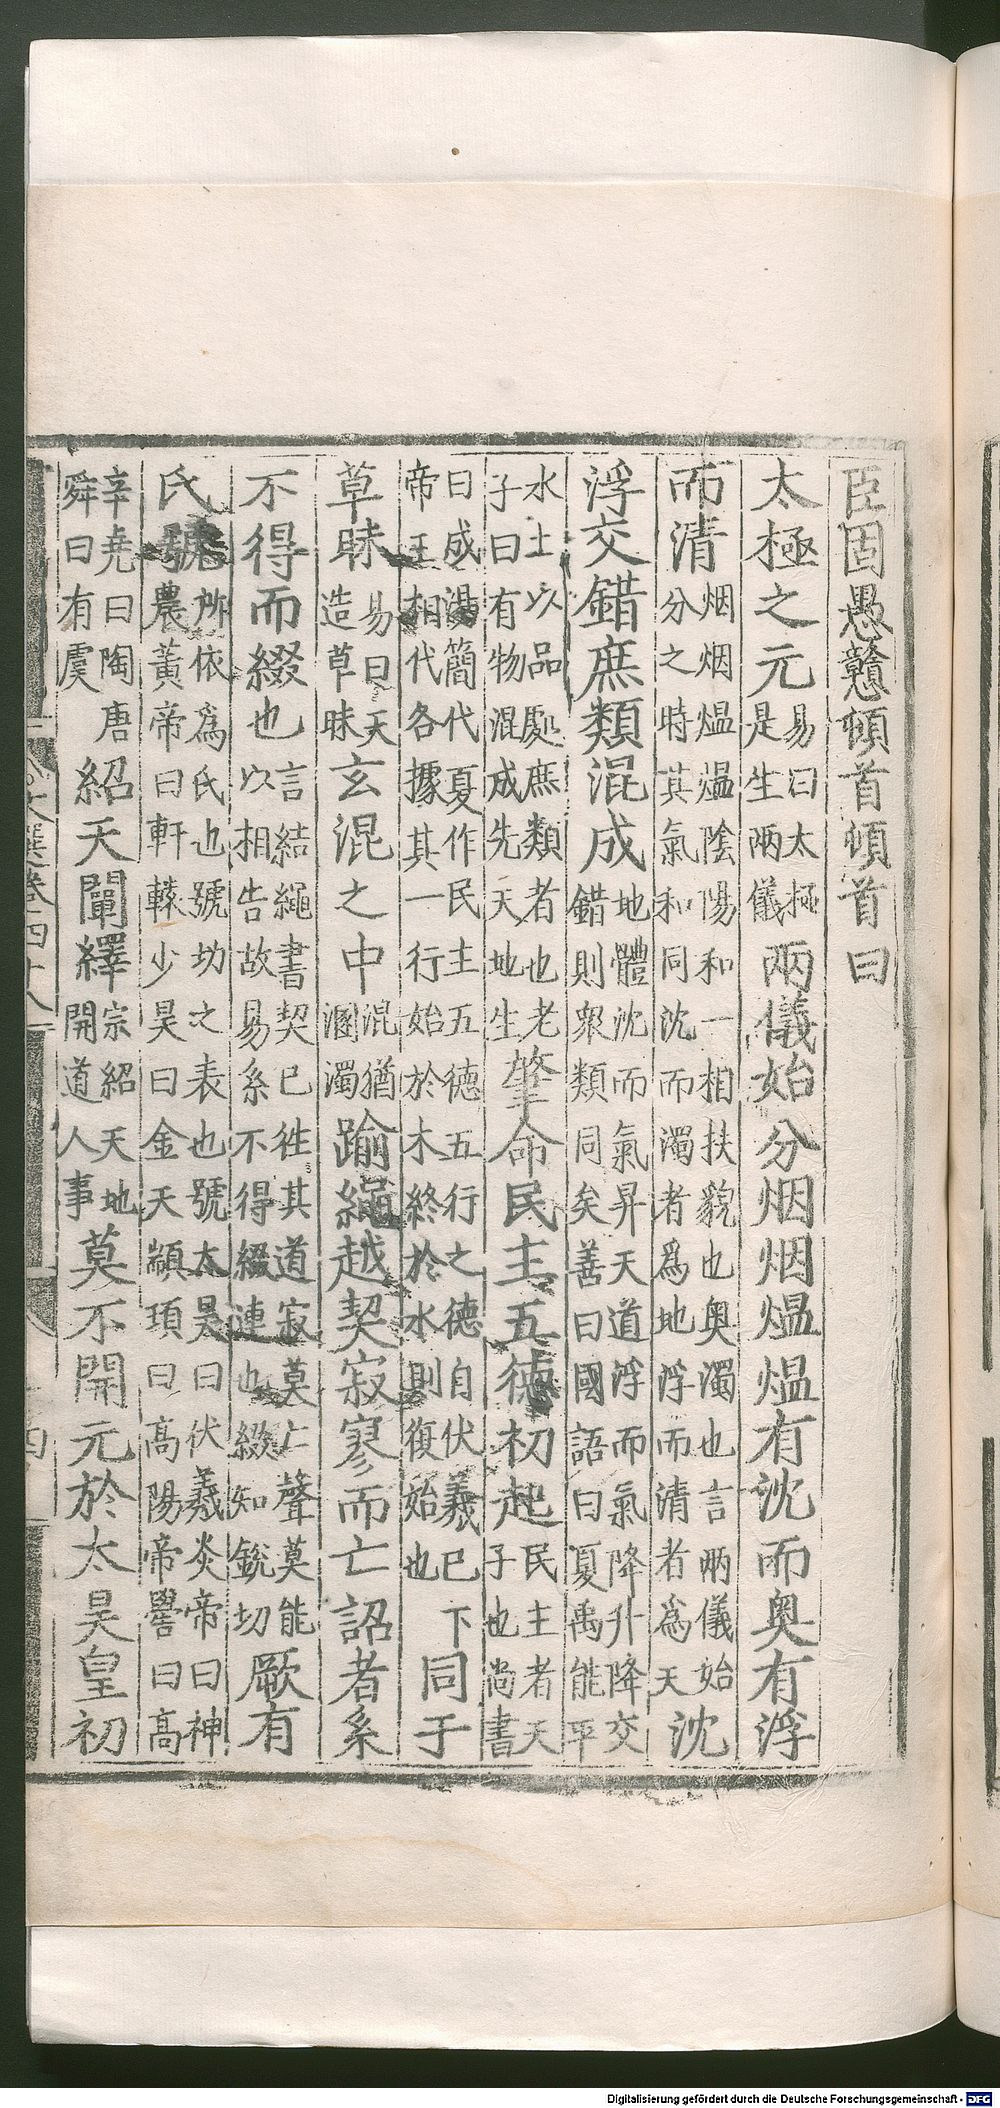 臣固愚戇頓首頓首曰
太極之元易曰太極是生兩儀兩儀始分烟烟熅熅有沈而奧有浮
而清烟烟熅熅陰陽和一相扶貌也奧濁也言兩儀始分之時其氣和同沈而濁者爲地浮而清者爲天沈
浮交錯庶類混成地體沈而氣昇天道浮而氣降升降交錯則衆類同矣善曰國語曰夏禹能平
水土以品處庶類者也老子曰有物混成先天地生肇命民主五德初起民主者天子也尚書
曰成湯簡代夏作民主五德五行之德自伏羲已下帝王相代各據其一行始於木終於水則復始也同于
草昧易曰天造草昧玄混之中混猶溷濁踰繩越契寂寥而亡詔者系
不得而綴也言結繩書契已往其道寂莫亡聲莫能以相告故易系不得綴連也綴知銳切厥有
氏號所依爲氏也號功之表也號太昊曰伏羲炎帝曰神農黃帝曰軒轅少昊曰金天顓頊曰高陽帝嚳曰高
辛堯曰陶唐舜曰有虞紹天闡繹宗紹天地開道人事莫不開元於太昊皇初
文選卷四十八
四
Digitalisierung gefördert durch die Deutsche Forschungsgemeinschaft - DFG